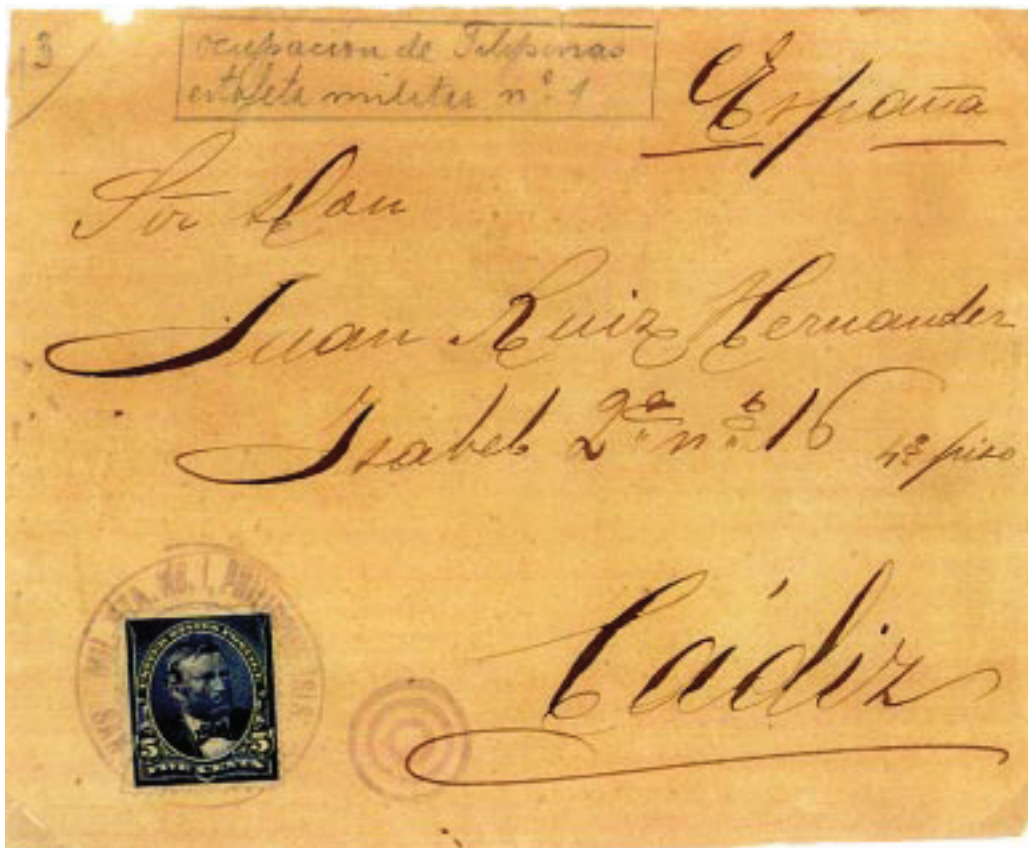 13
ocupacion de Filipinas
estafeta militar nº 1
España
Sor Don
Juan Ruiz Hernandez
Isabel 2ª nº 16 4º piso
Cádiz
MIL. STA. NO. 1, PHILIPPINE ISLS
UNITED STATES POSTAGE
5 5
FIVE CENTS